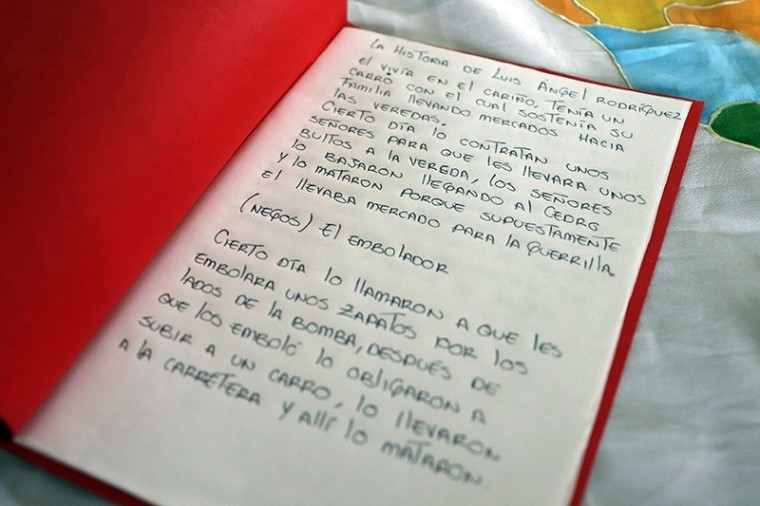 LA HISTORIA DE LUIS ÁNGEL RODRÍGUEZ
EL VIVÍA EN EL CARIÑO, TENÍA UN
CARRO CON EL CUAL SOSTENÍA SU
FAMILIA LLEVANDO MERCADOS HACIA
LAS VEREDAS.
CIERTO DÍA LO CONTRATAN UNOS
SEÑORES PARA QUE LES LLEVARA UNOS
BULTOS A LA VEREDA, LOS SEÑORES
LO BAJARON LLEGANDO AL CEDRO
Y LO MATARON PORQUE SUPUESTAMENTE
EL LLEVABA MERCADO PARA LA GUERRILLA.
(NEGOS) EL EMBOLADOR
CIERTO DÍA LO LLAMARON A QUE LES
EMBOLARA UNOS ZAPATOS POR LOS
LADOS DE LA BOMBA, DESPUÉS DE
QUE LOS EMBOLÓ LO OBLIGARON A
SUBIR A UN CARRO, LO LLEVARON
A LA CARRETERA Y ALLÍ LO MATARON.